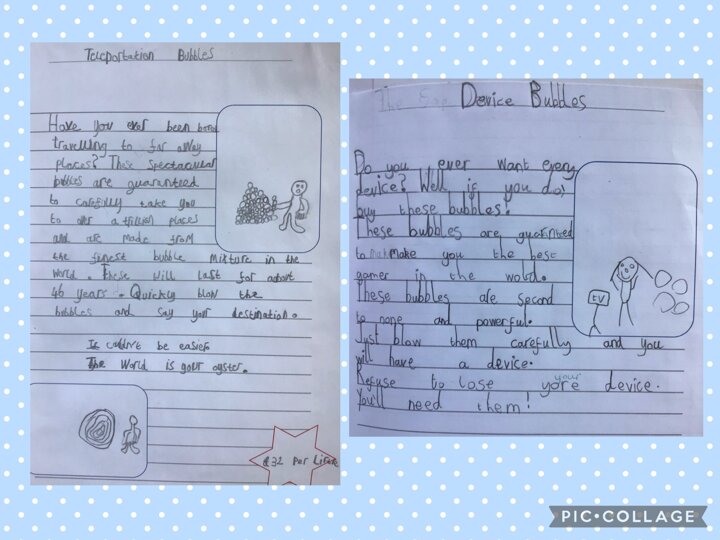 Teleportation Bubbles
Have you ever been bored
travelling to far away
places? These spectacular
bubbles are guaranteed
to carefully take you
to over a trillion places
and are made from
the finest bubble mixture in the
world. These will last for about
46 years. Quickly blow the
bubbles and say your destination.
It couldn't be easier.
The world is your oyster.
£32 Per Litre
Device Bubbles
Do you ever want every
device? Well if you do,
buy these bubbles.
These bubbles are guarinted
to make you the best
gamer in the world.
These bubbles are second
to none and powerful.
Just blow them carefully and you
will have a device.
Refuse to lose your device.
You'll need them!
TV
PIC•COLLAGE